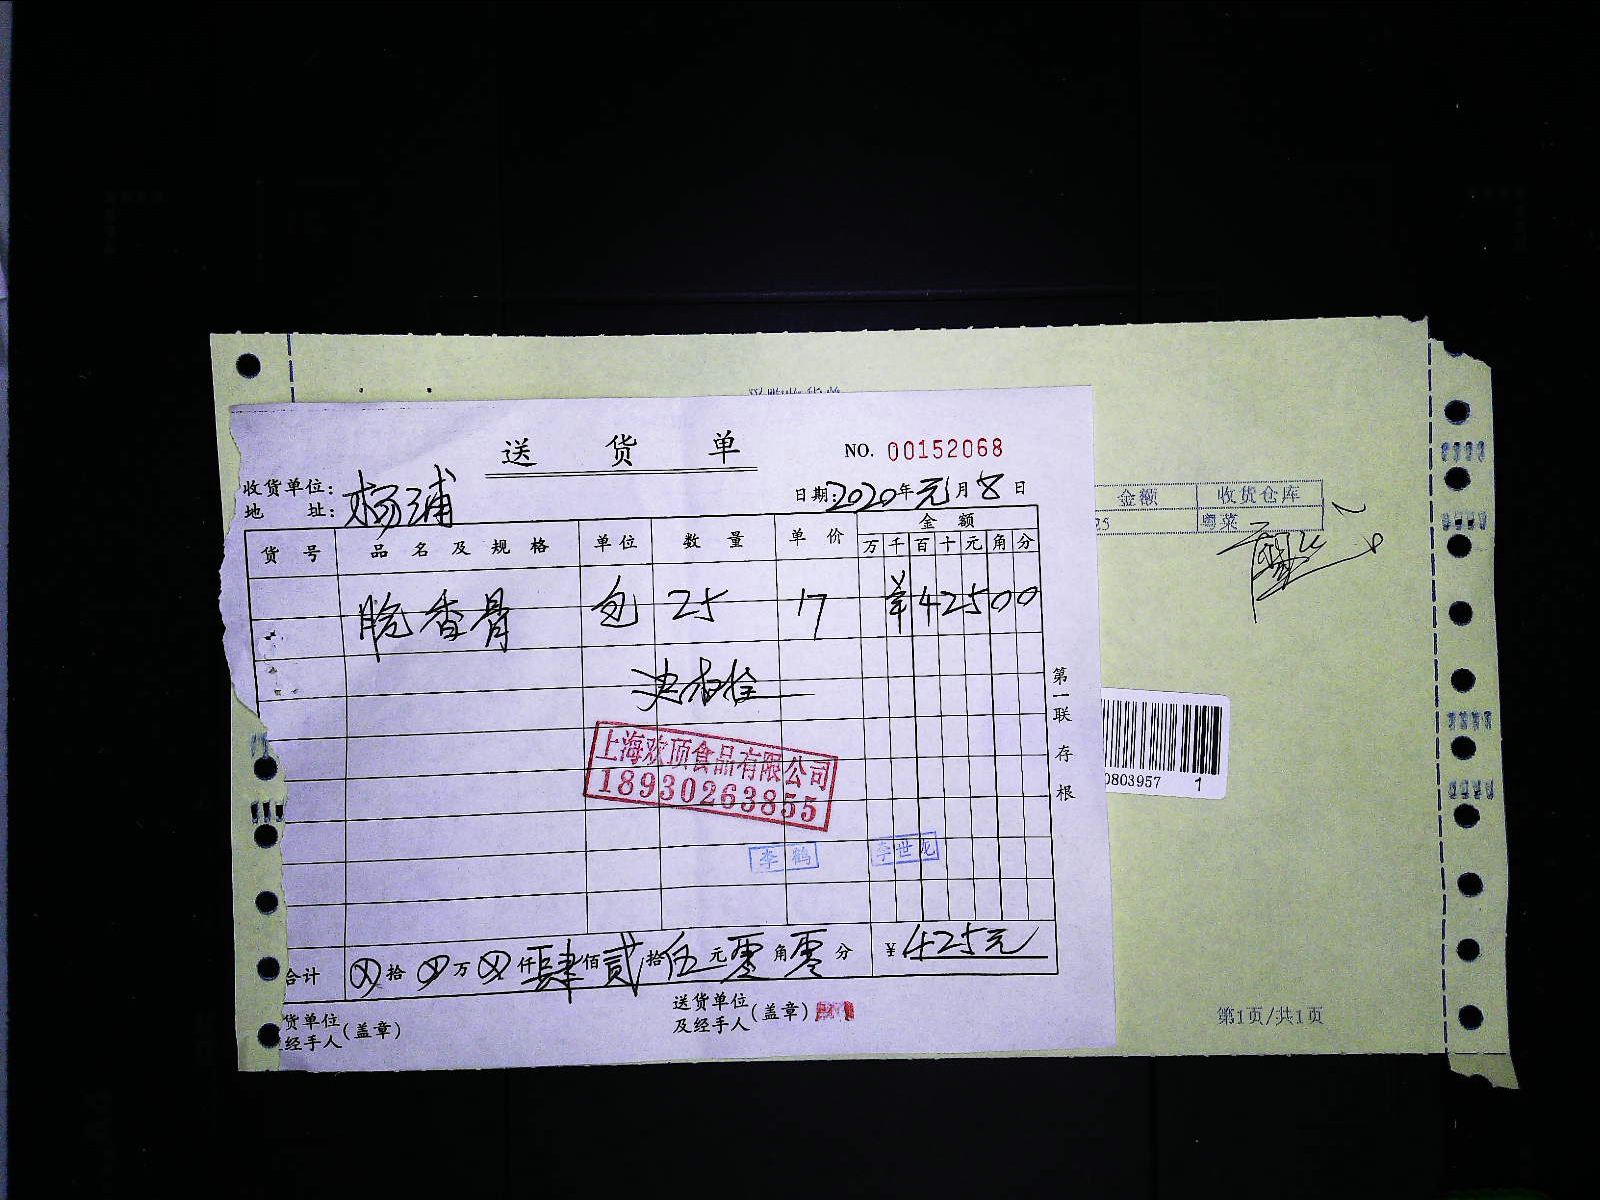 送 货 单
NO. 00152068
收货单位:
地 址:
杨浦
日期:2020年元月8日
金额 收货仓库
25 粤菜
货 号 品 名 及 规 格 单 位 数 量 单 价 金 额
万 千 百 十 元 角 分
脆香骨 包 25 17 ¥42500
第一联 存根
上海欢顶食品有限公司
18930263855
李鹤 李世龙
0803957 1
合计 拾 万 仟肆佰贰拾伍元零角零分 ¥425元
货单位
经手人(盖章)
送货单位
及经手人(盖章)
第1页/共1页